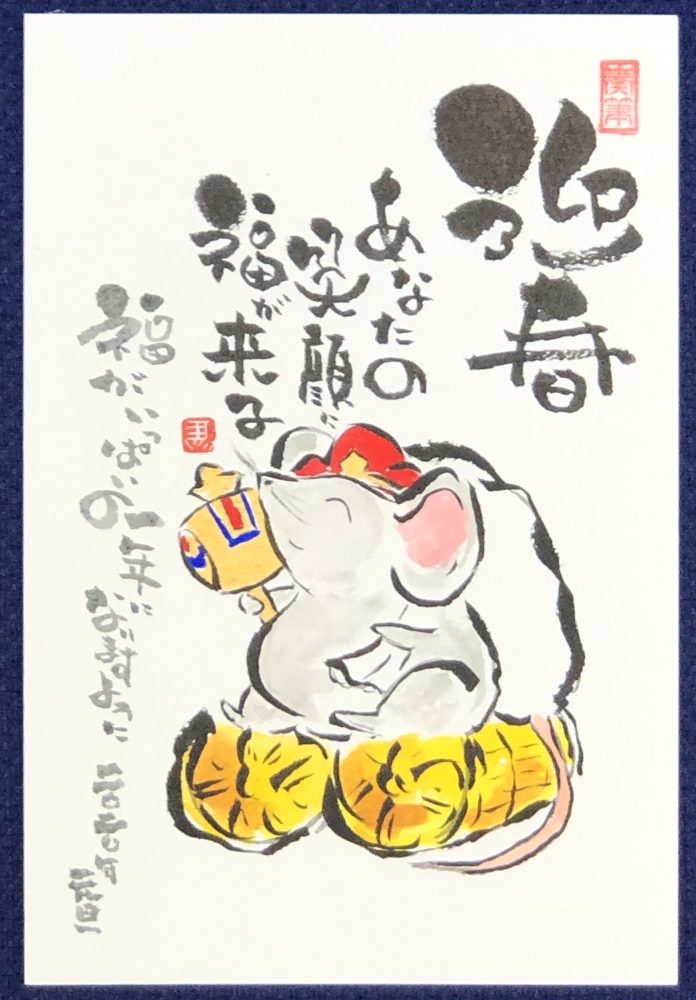 迎春
あなたの
笑顔に
福が来る
福がいっぱいの一年に
なりますように
元旦